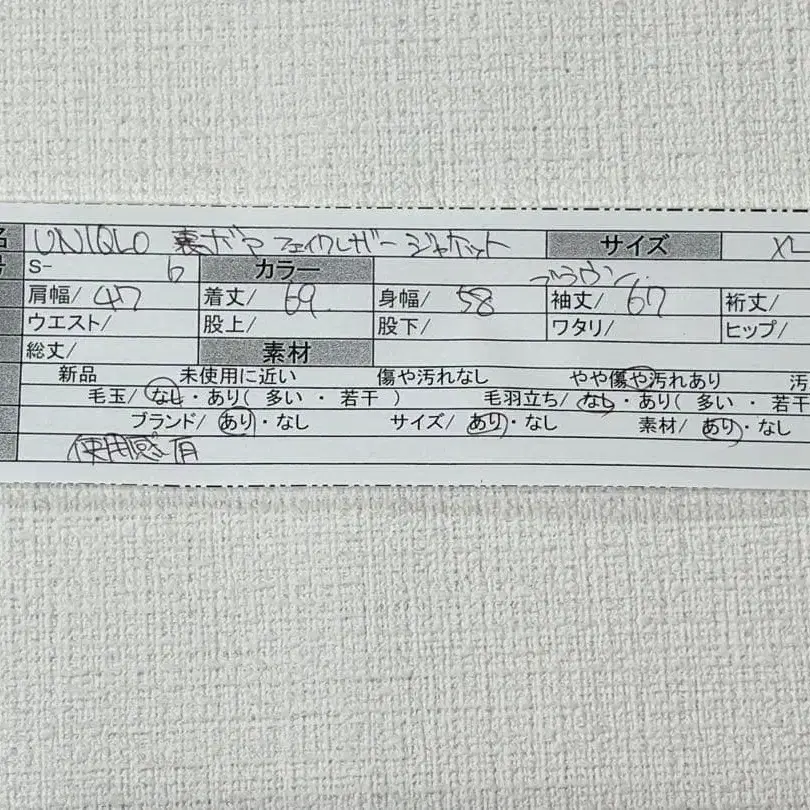 名 UNIQLO 裏ボア フェイクレザージャケット サイズ XL
号 S- 6 カラー ブラウン
肩幅/ 47 着丈/ 69 身幅/ 58 袖丈/ 67 裄丈/
ウエスト/ 股上/ 股下/ ワタリ/ ヒップ/
総丈/ 素材
新品 未使用に近い 傷や汚れなし やや傷や汚れあり 汚
毛玉/なし・あり( 多い ・ 若干 ) 毛羽立ち/なし・あり( 多い ・ 若干
ブランド/ あり・なし サイズ/ あり・なし 素材/ あり・なし
使用感有